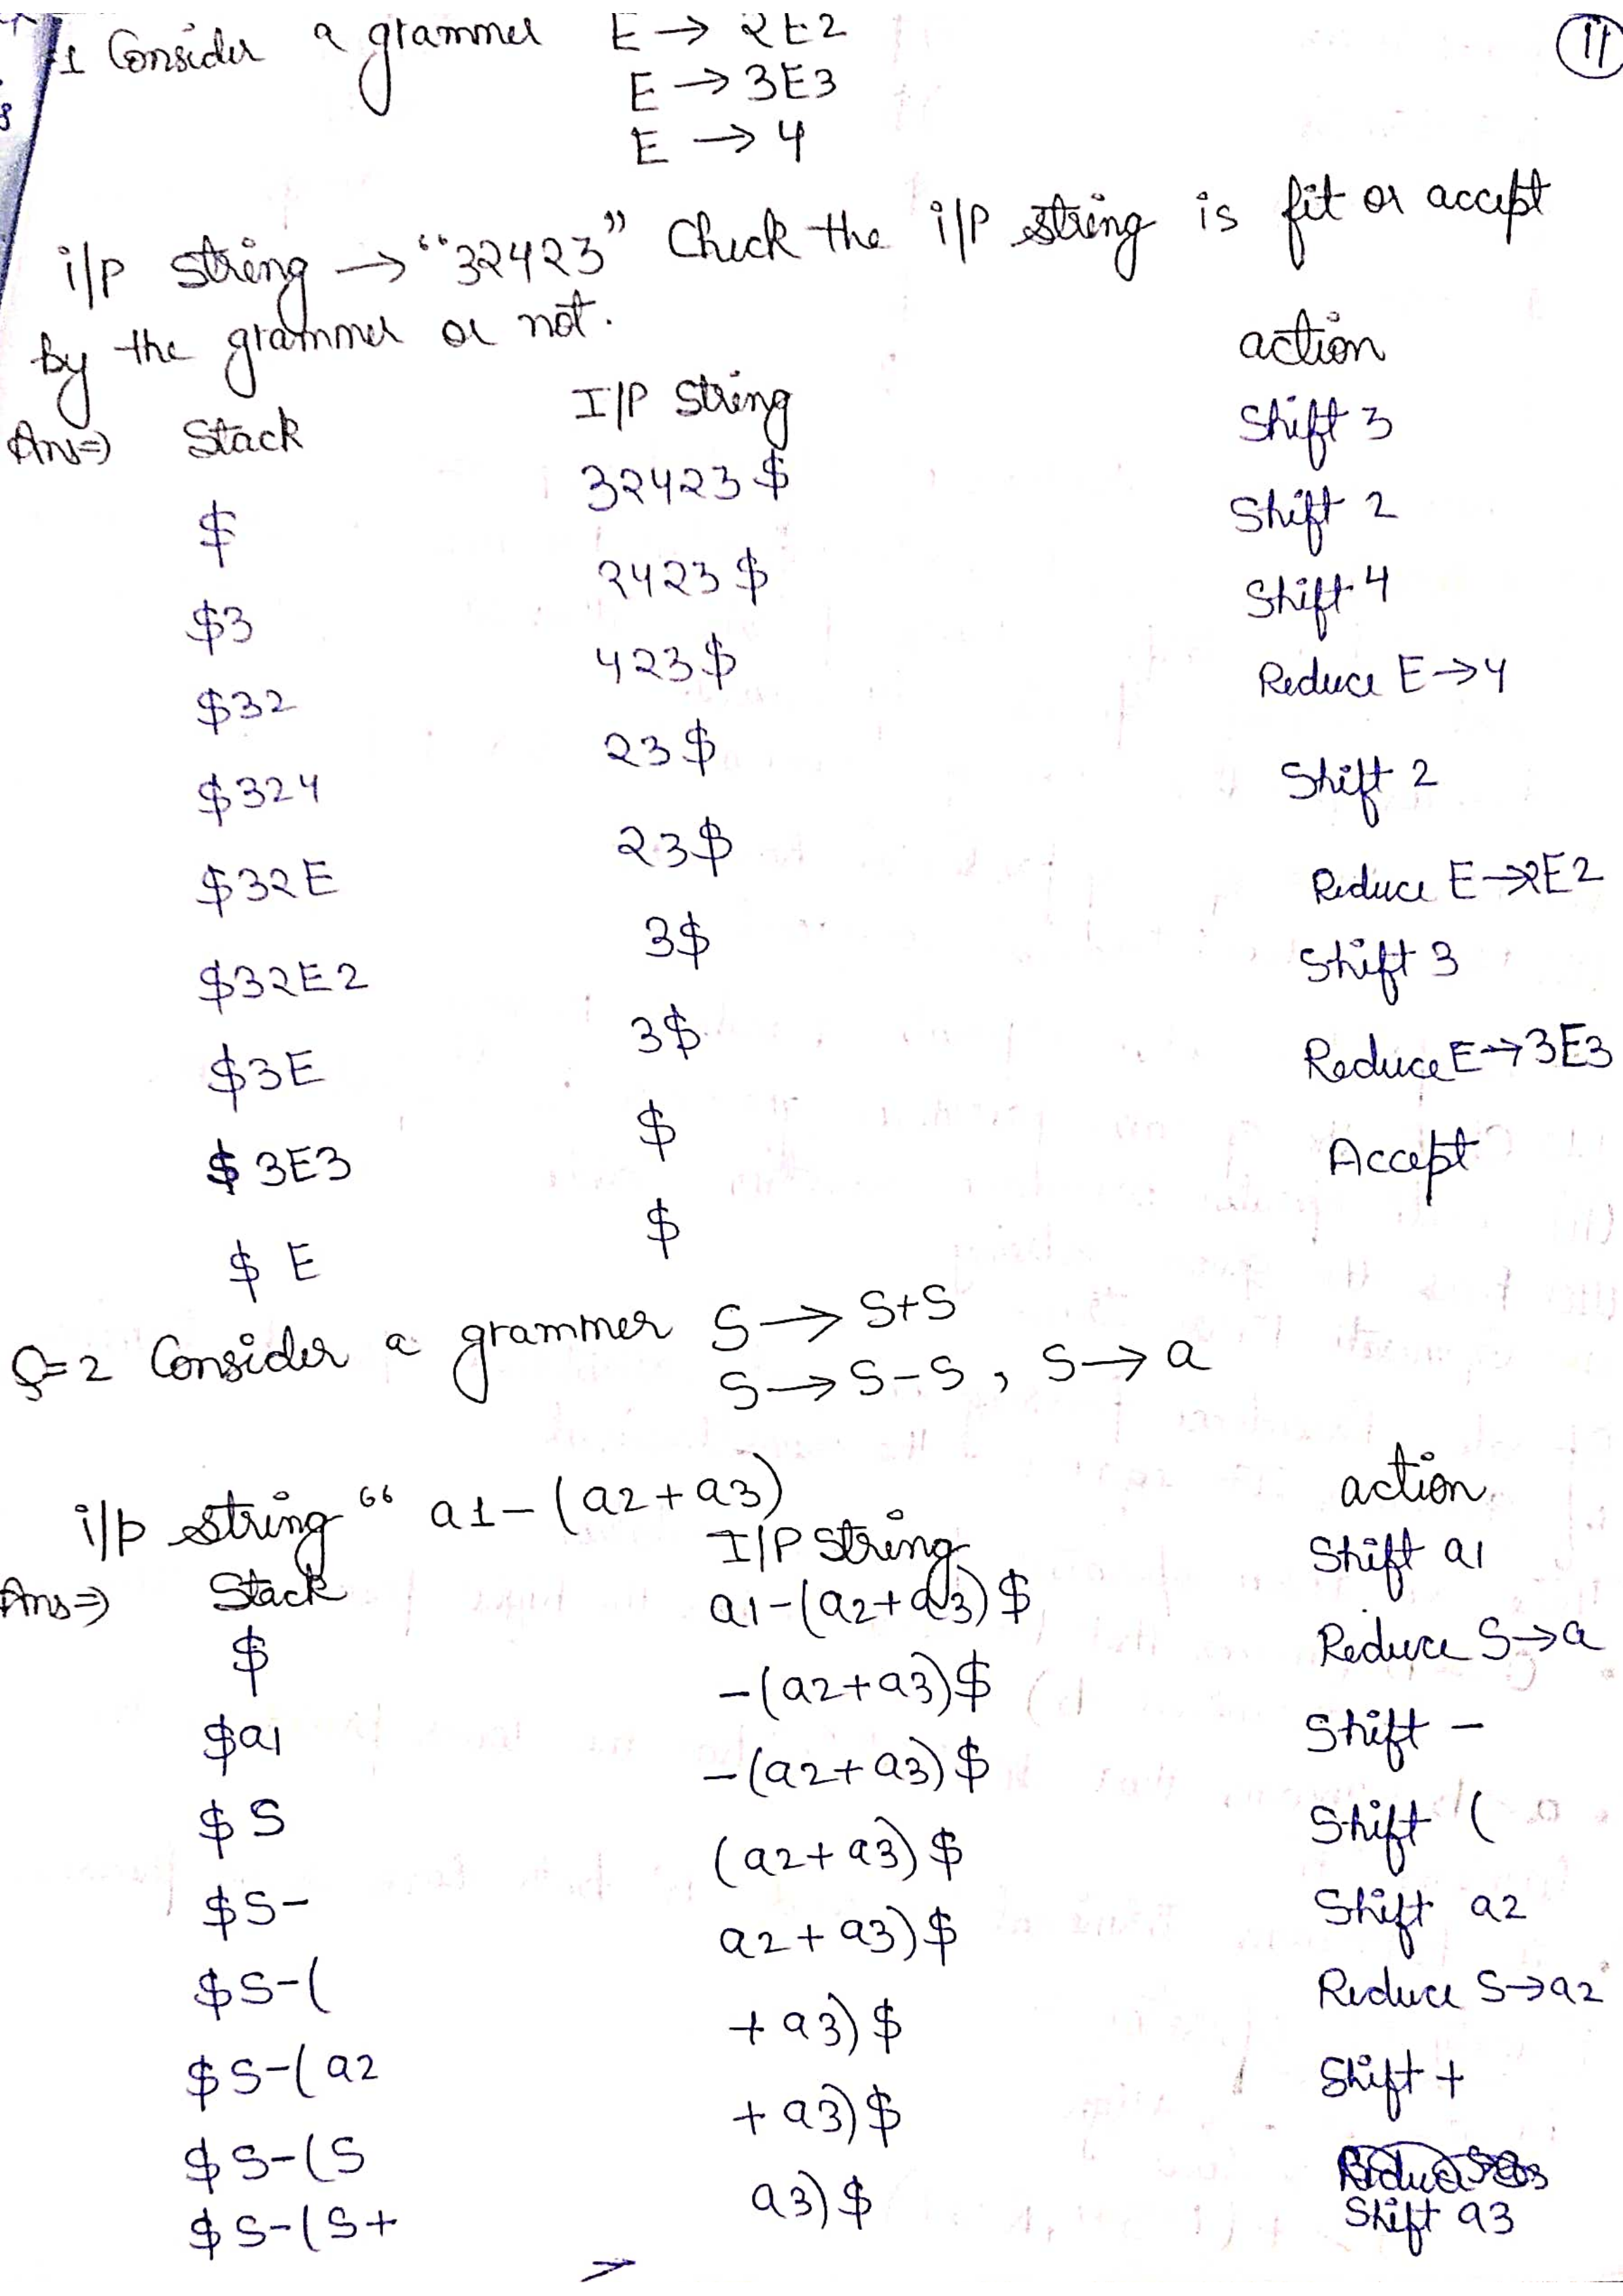 1 Consider a grammer E → 2E2
11
E → 3E3
E → 4
i/p string → "32423" Check the i/p string is fit or accept
by the grammer or not.
Ans⇒ Stack I/P String action
$ 32423$ Shift 3
$3 2423$ Shift 2
$32 423$ Shift 4
$324 23$ Reduce E→4
$32E 23$ Shift 2
$32E2 3$ Reduce E→2E2
$3E 3$ Shift 3
$3E3 $ Reduce E→3E3
$E $ Accept
Q=2 Consider a grammer S → S+S
S → S-S, S → a
i/p string " a1-(a2+a3)
Ans⇒ Stack I/P String action
$ a1-(a2+a3)$ Shift a1
$a1 -(a2+a3)$ Reduce S→a
$S -(a2+a3)$ Shift -
$S- (a2+a3)$ Shift (
$S-( a2+a3)$ Shift a2
$S-(a2 +a3)$ Reduce S→a2
$S-(S +a3)$ Shift +
$S-(S+ a3)$ Shift a3